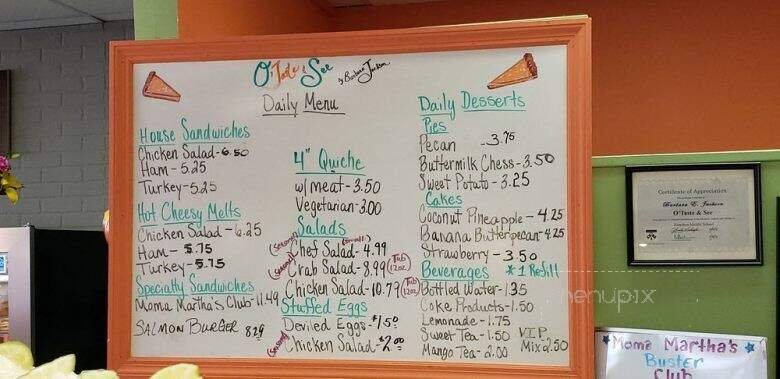 O'Taste & See
by Barbara Jackson
Daily Menu
House Sandwiches
Chicken Salad-6.50
Ham - 5.25
Turkey-5.25
Hot Cheesy Melts
Chicken Salad-6.25
Ham - 5.75
Turkey-5.75
Specialty Sandwiches
Moma Martha's Club-11.49
SALMON BURGER 829
4" Quiche
w/meat-3.50
Vegetarian-3.00
Salads
(Seasonal) Chef Salad-4.99 (small)
(Seasonal) Crab Salad-8.99 (Tub 12oz)
Chicken Salad-10.79 (Tub 12oz)
Stuffed Eggs
Deviled Eggs-$1.50
(Seasonal) Chicken Salad-$2.00
Daily Desserts
Pies
Pecan -3.75
Buttermilk Chess-3.50
Sweet Potato-3.25
Cakes
Coconut Pineapple-4.25
Banana Butterpecan-4.25
Strawberry-3.50
Beverages *1 Refill
Bottled Water-1.35
Coke Products-1.50
Lemonade-1.75
Sweet Tea-1.50
Mango Tea-2.00
V.I.P. Mix 2.50
Certificate of Appreciation
Barbara E. Jackson
O'Taste & See
menupix
*Moma Martha's*
Buster
Club